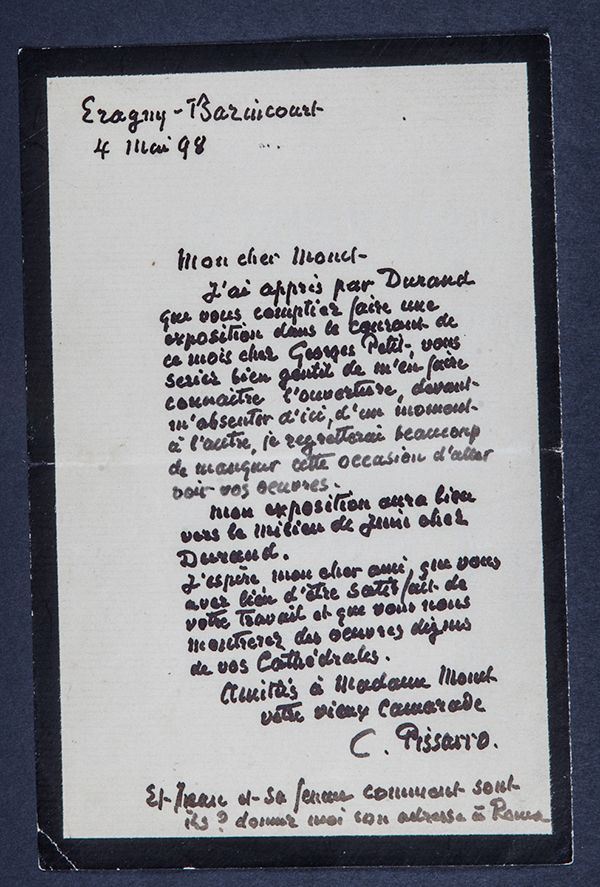 Eragny-Bazincourt
4 Mai 98
Mon cher Monet
J'ai appris par Durand
que vous comptiez faire une
exposition dans le courant de
ce mois chez Georges Petit, vous
seriez bien gentil de m'en faire
connaitre l'ouverture, devant
m'absenter d'ici, d'un moment
à l'autre, je regretterai beaucoup
de manquer cette occasion d'aller
voir vos oeuvres.
Mon exposition aura lieu
vers le milieu de Juin chez
Durand.
J'espère mon cher ami, que vous
avez lieu d'être satisfait de
votre travail et que vous nous
montrerez des oeuvres dignes
de vos Cathédrales.
Amitiés à Madame Monet
votre vieux camarade
C. Pissarro.
Et Jean et sa femme comment sont
ils? donnez moi son adresse à Rouen